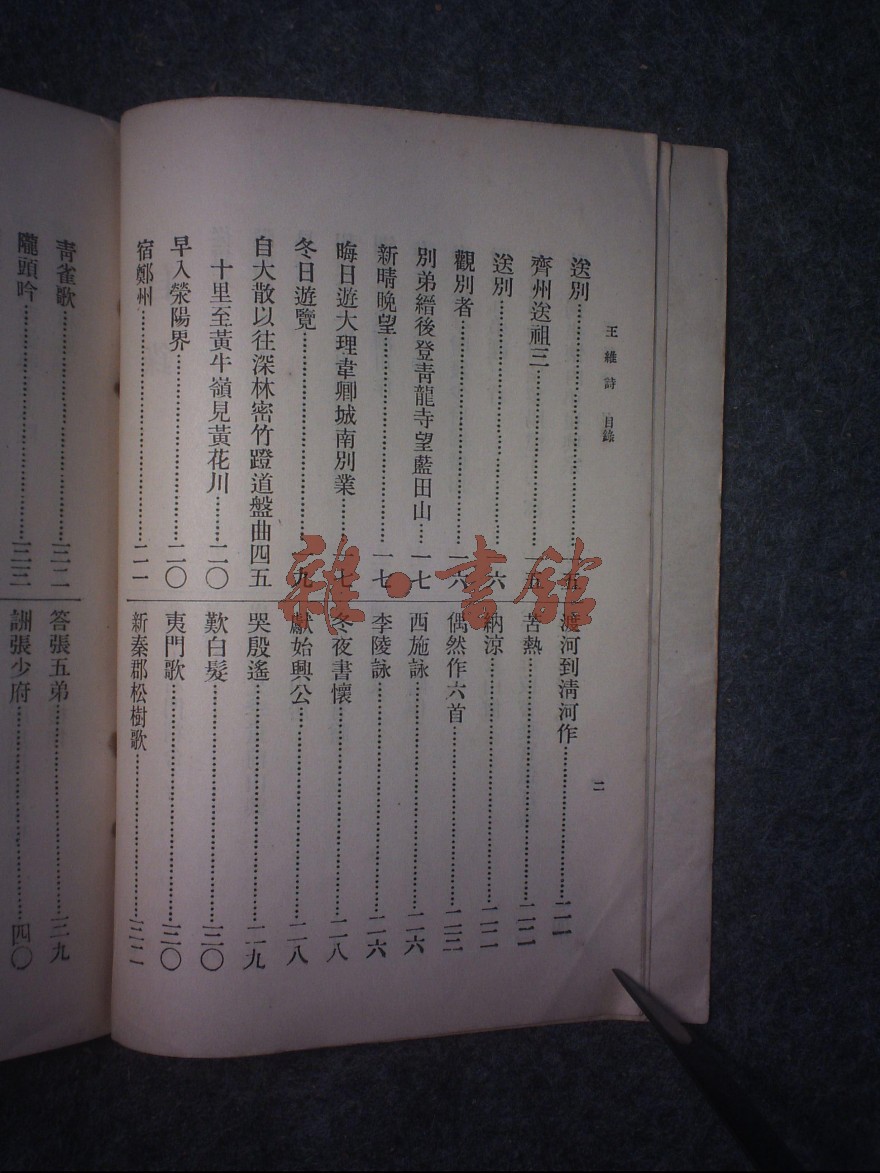 王維詩 目錄
二
送別……一五
齊州送祖三……一五
送別……一六
觀別者……一六
別弟縉後登青龍寺望藍田山……一七
新晴晚望……一七
晦日遊大理韋卿城南別業……一七
冬日遊覽……一九
自大散以往深林密竹蹬道盤曲四五
十里至黃牛嶺見黃花川……二〇
早入滎陽界……二〇
宿鄭州……二一
渡河到清河作……二一
苦熱……二二
納涼……二二
偶然作六首……二三
西施詠……二六
李陵詠……二六
冬夜書懷……二八
獻始興公……二八
哭殷遙……二九
歎白髮……三〇
夷門歌……三〇
新秦郡松樹歌……三二
青雀歌……三二
隴頭吟……三三
答張五弟……三九
酬張少府……四〇
雜·書館